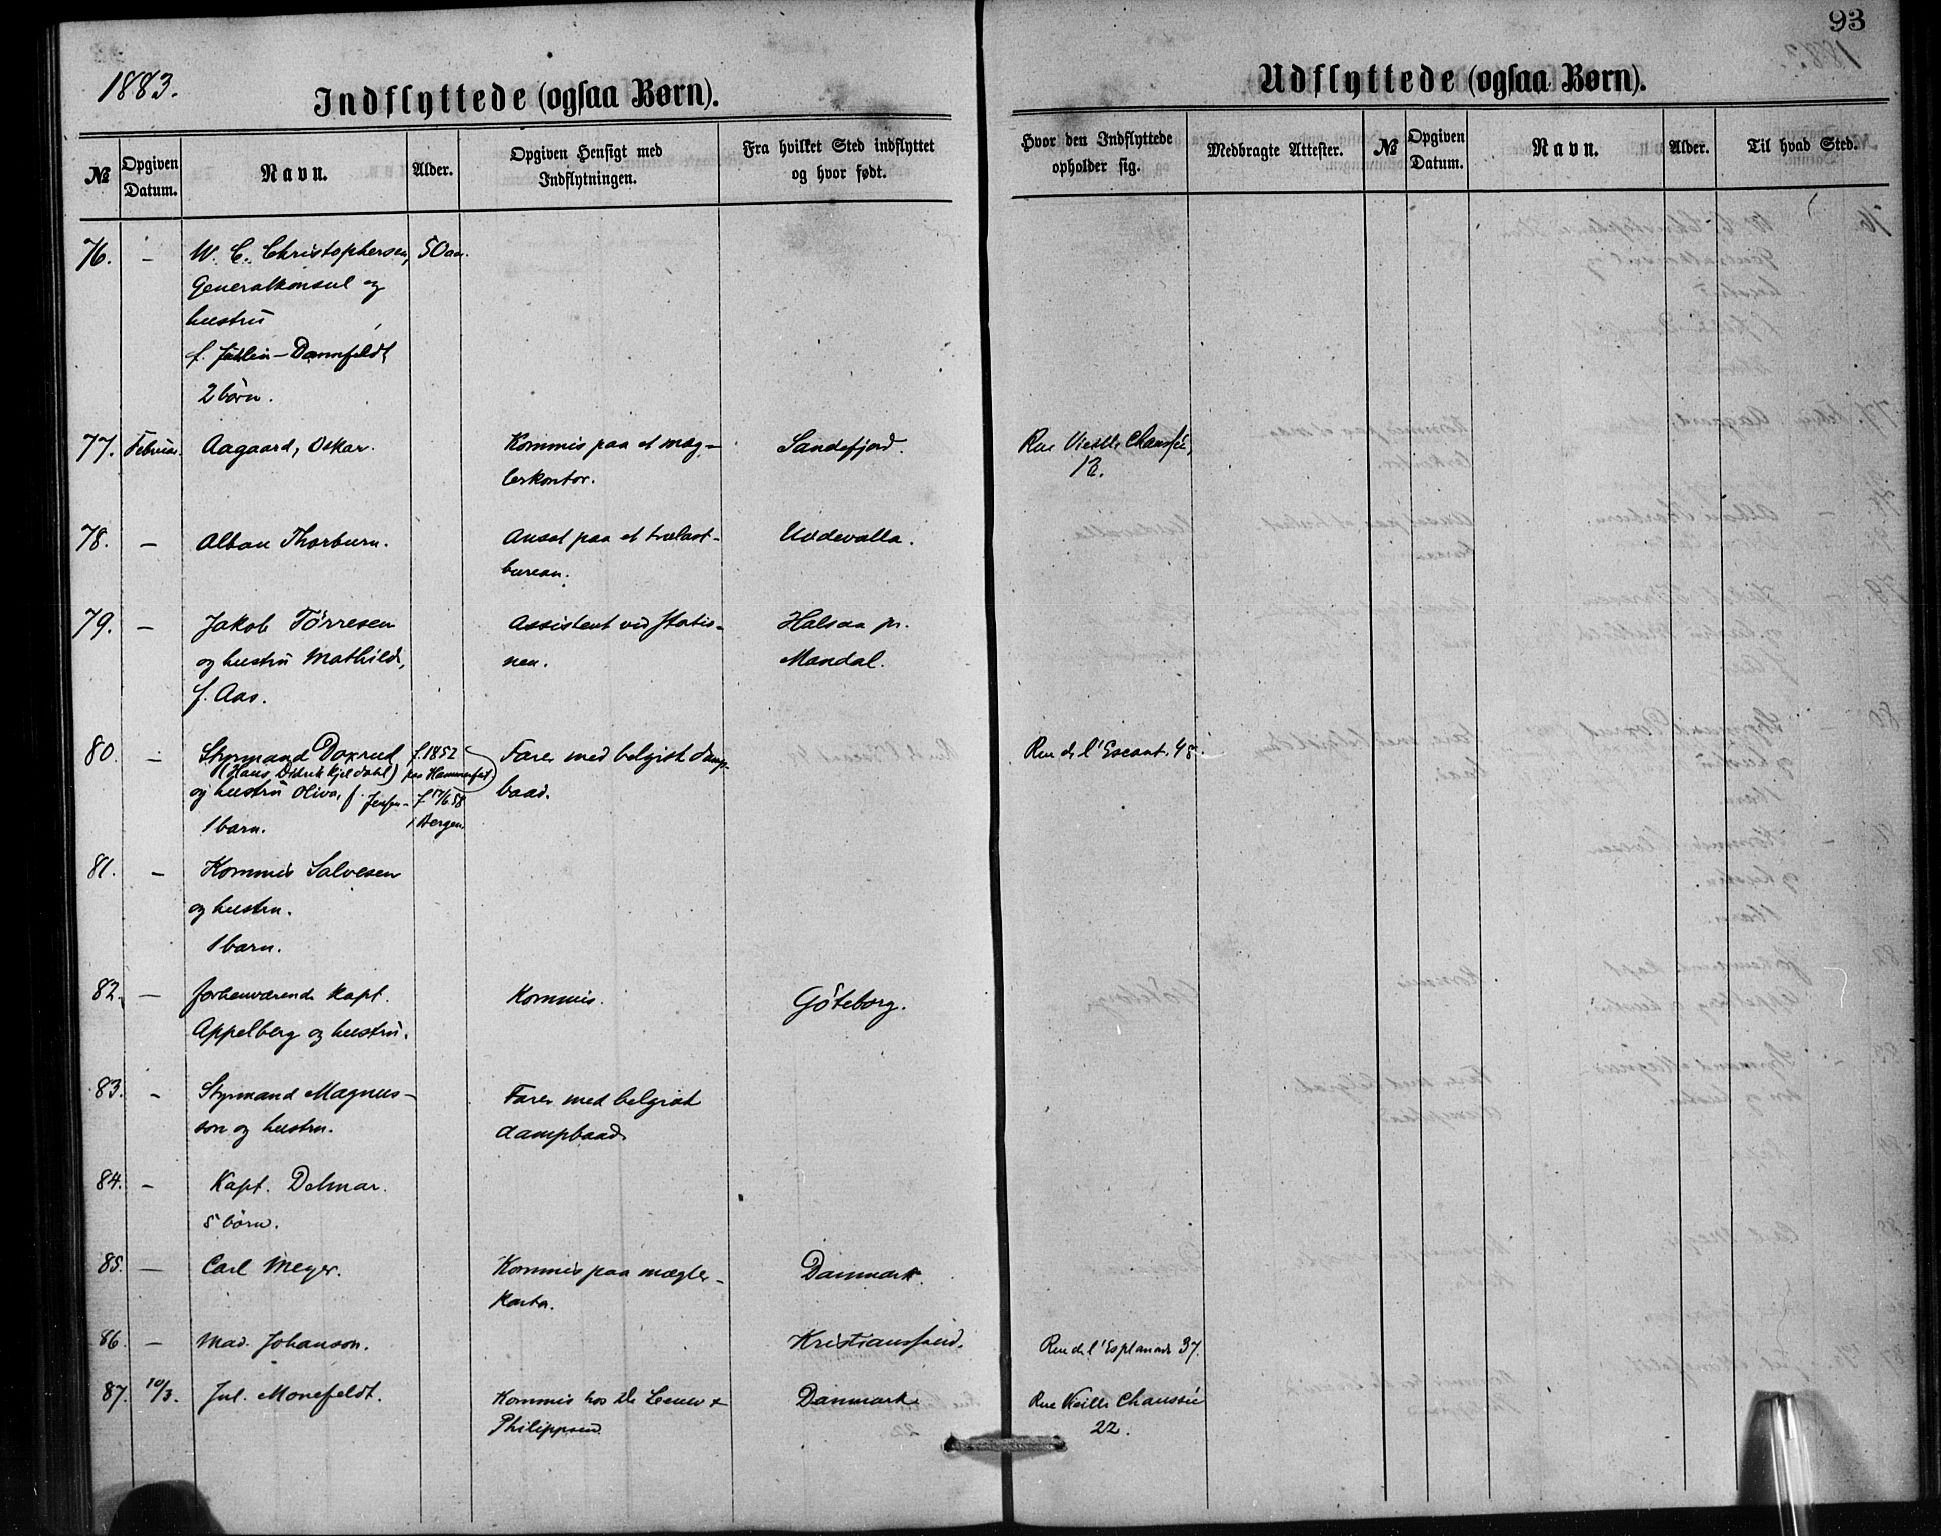 93
1883.
Indflyttede (ogsaa Børn).
Udflyttede (ogsaa Børn).
№ Opgiven Datum. Navn. Alder. Opgiven Hensigt med Indflytningen. Fra hvilket Sted indflyttet og hvor født. Hvor den Indflyttede opholder sig. Medbragte Attester. № Opgiven Datum. Navn. Alder. Til hvad Sted.
76. – W. C. Christophersen, 50 aar.
Generalkonsul og
hustru
f. Juhlin-Dannfeldt
2 børn.
77. Februar. Aagaard, Oskar. Kommis paa et mæg- Sandefjord. Rue Vieille Chaussée,
lerkontor. 12.
78. – Alban Thorburn. Ansat paa et trælast- Uddevalla.
bureau.
79. – Jakob Tørresen Assistent ved statio- Halsaa pr.
og hustru Mathilde, nen. Mandal.
f. Aas.
80. – Styrmand Doxrud f. 1852 Farer med belgisk damp- Rue de l'Escaut 48.
(Hans Didrik Kjeldahl) paa Hammerfest
og hustru Oliva, f. Jensen f 17/6 58 baad.
1 barn. i Bergen
81. – Kommis Salvesen
og hustru.
1 barn.
82. – forhenværende Kapt. Kommis. Göteborg.
Appelberg og hustru.
83. – Styrmand Magnus- Farer med belgisk
son og hustru. dampbaad.
84. – Kapt. Delmar.
5 børn.
85. – Carl Meyer. Kommis paa mægler- Danmark.
kontor.
86. – Mad. Johanson. Kristianssand. Rue de l'Esplanade 37.
87. 10/3. Jul. Monefeldt. Kommis hos De Leeuw & Danmark Rue Vieille Chaussée
Philippsen 22.